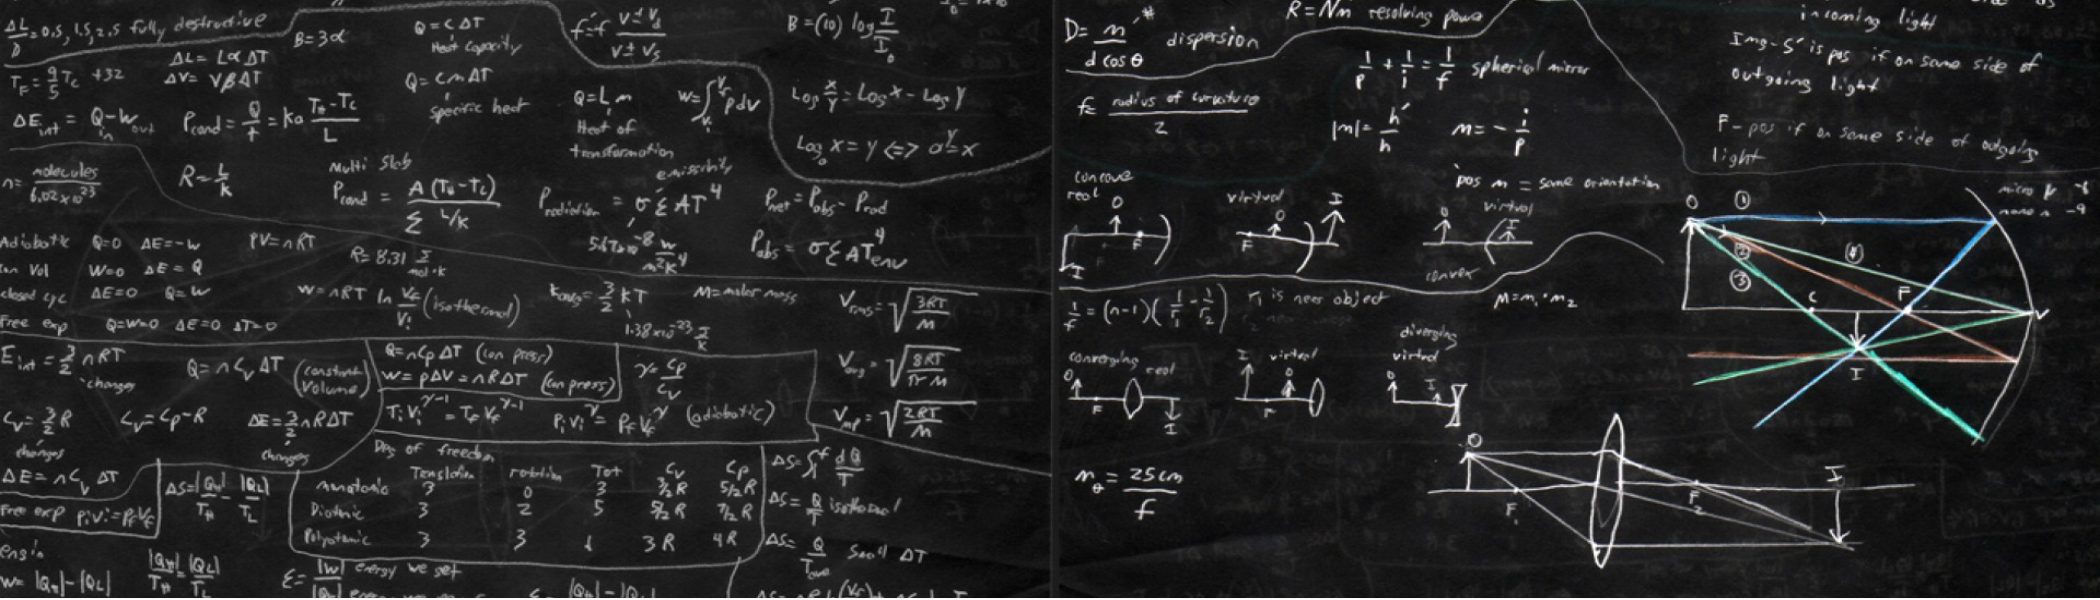 ΔL/D = 0.5, 1.5, 2.5 fully destructive
B=3α
Q=CΔT
Heat capacity
f'=f (v±v_d)/(v±v_s)
B=(10) log I/I_0
ΔL=LαΔT
T_F = 9/5 T_C +32
ΔV=VβΔT
Q=cmΔT
specific heat
ΔE_int = Q_in - W_out
P_cond = Q/t = kA (T_H-T_C)/L
Q=Lm
Heat of
transformation
W=∫ p dV
Log x/y = Log x - Log y
Log_a x = y <=> a^y = x
n= molecules/6.02x10^23
R=L/k
Multi Slab
P_cond = A(T_H-T_C)/Σ L/k
emissivity
P_radiation = σεAT^4
5.67x10^-8 W/m²K^4
P_net = P_abs - P_rad
P_abs = σεAT_env^4
Adiabatic Q=0 ΔE=-W
PV=nRT
R=8.31 J/mol·K
Con Vol W=0 ΔE=Q
closed cyc ΔE=0 Q=W
W=nRT ln V_f/V_i (isothermal)
K_avg = 3/2 kT
1.38x10^-23 J/K
M=molar mass
V_rms = √(3RT/M)
Free exp Q=W=0 ΔE=0 ΔT=0
E_int = 3/2 nRT
changes
Q=nC_vΔT (constant
Volume)
Q=nC_pΔT (con press)
W=pΔV=nRΔT (con press)
γ=C_p/C_v
V_avg = √(8RT/πM)
C_v = 3/2 R
changes
C_v=C_p-R
ΔE=3/2 nRΔT
changes
T_iV_i^(γ-1) = T_fV_f^(γ-1)
P_iV_i^γ = P_fV_f^γ (adiabatic)
V_mp = √(2RT/M)
ΔE=nC_vΔT
Free exp P_iV_i=P_fV_f
ΔS=|Q_H|/T_H - |Q_L|/T_L
Deg of freedom
Translation rotation Tot C_v C_p
monatomic 3 0 3 3/2 R 5/2 R
Diatomic 3 2 5 5/2 R 7/2 R
Polyatomic 3 3 6 3R 4R
ΔS=∫_i^f dQ/T
ΔS=Q/T isothermal
ΔS=Q/T_ave small ΔT
W=|Q_H|-|Q_L|
|Q_H|/T_H = |Q_L|/T_L
ε=|W| energy we get
D= m/(d cosθ) dispersion
R=Nm resolving power
f= radius of curvature/2
1/p + 1/i = 1/f spherical mirror
|m|=h'/h
m=-i/p
pos m = same orientation
incoming light
Img-S' is pos if on same side of
outgoing light
F-pos if on same side of outgoing
light
micro μ -6
nano n -9
concave
real
O
F
I
virtual
O
F
I
O
virtual
I
convex
1/f = (n-1)(1/r_1 - 1/r_2)
r_1 is near object
M=m_1·m_2
converging real
O
F
I
I
virtual
O
F
diverging
virtual
O
I
m_θ = 25cm/f
O
①
②
③
④
C
F
V
I
O
F_1
F_2
I